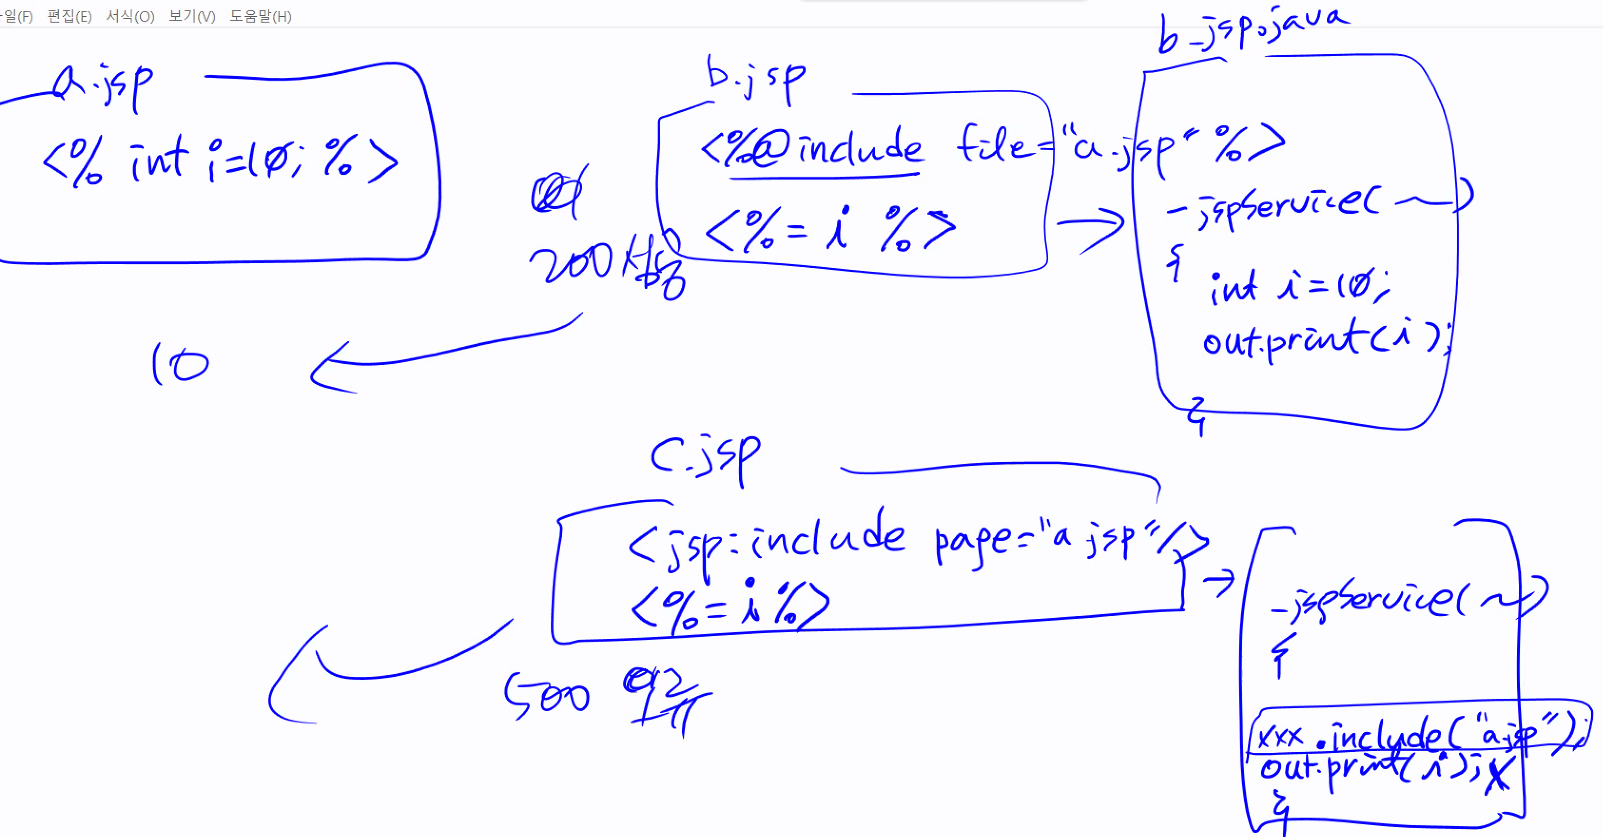 일(F) 편집(E) 서식(O) 보기(V) 도움말(H)
a.jsp
<% int i=10; %>
b.jsp
<%@ include file="a.jsp" %>
<%= i %>
200
10
b_jsp.java
_jspService( ~ )
{
int i=10;
out.print(i);
}
c.jsp
<jsp:include page="a.jsp"/>
<%= i %>
500 에러
_jspService( ~ )
{
xxx.include("a.jsp");
out.print(i); X
}